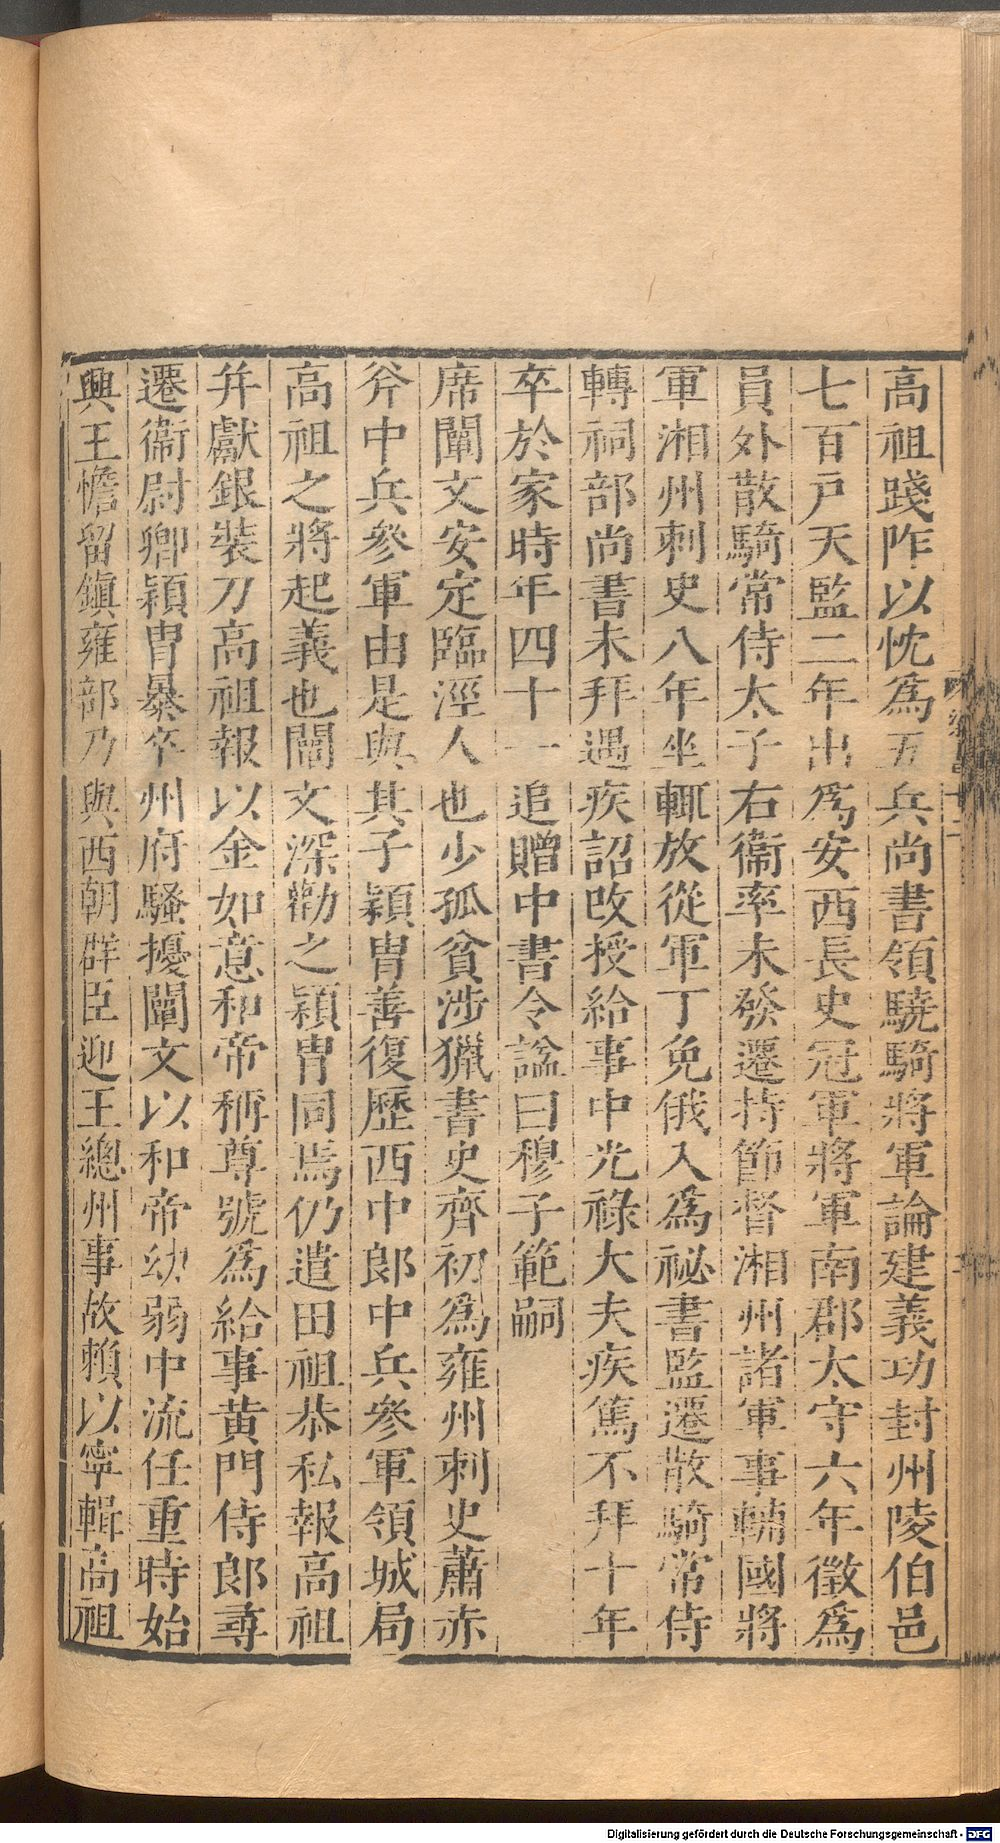 高祖踐阼以忱為五兵尚書領驍騎將軍論建義功封州陵伯邑
七百戸天監二年出為安西長史冠軍將軍南郡太守六年徵為
員外散騎常侍太子右衞率未發遷持節督湘州諸軍事輔國將
軍湘州刺史八年坐輒放從軍丁免俄入為祕書監遷散騎常侍
轉祠部尚書未拜遇疾詔改授給事中光祿大夫疾篤不拜十年
卒於家時年四十一追贈中書令諡曰穆子範嗣
席闡文安定臨涇人也少孤貧涉獵書史齊初為雍州刺史蕭赤
斧中兵參軍由是與其子穎冑善復歷西中郎中兵參軍領城局
高祖之將起義也闡文深勸之穎冑同焉仍遣田祖恭私報高祖
并獻銀裝刀高祖報以金如意和帝稱尊號為給事黃門侍郎尋
遷衞尉卿穎冑暴卒州府騷擾闡文以和帝幼弱中流任重時始
興王憺留鎮雍部乃與西朝群臣迎王總州事故賴以寧輯高祖
Digitalisierung gefördert durch die Deutsche Forschungsgemeinschaft - DFG